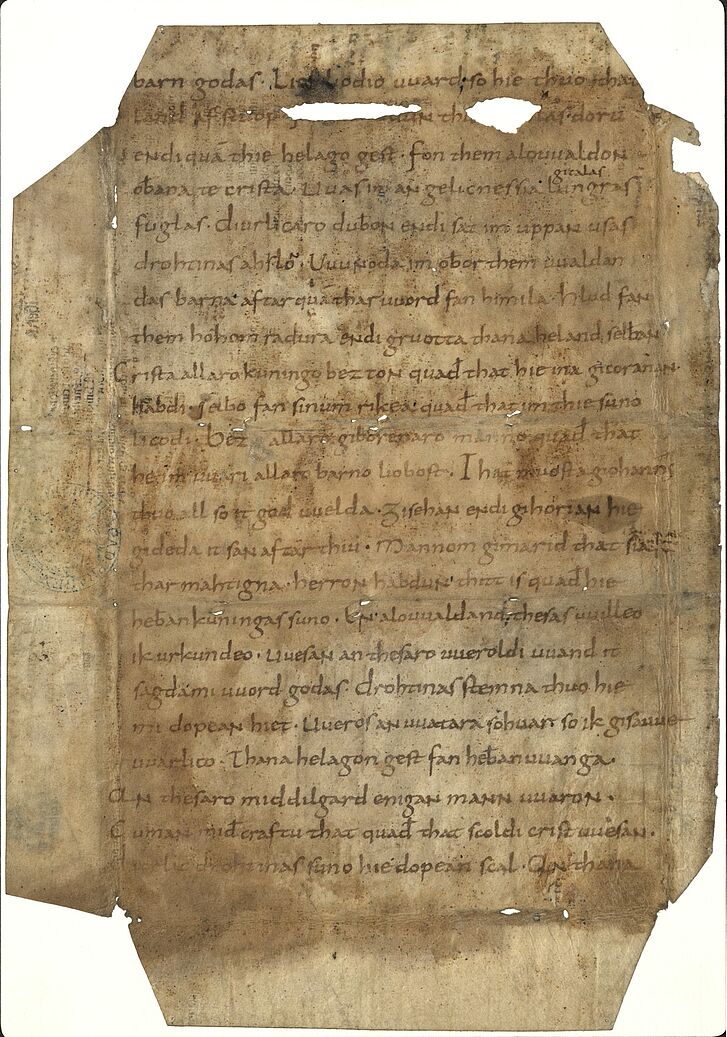 barn godas· liodio uuard so hie thuo that
land af stop doru
endi quā thie helago gest· fon them alouualdon
oƀana te crista· Uuas im an gelicnessia lungras gitalas
fuglas· diurlicaro duƀon endi sat im uppan usas
drohtinas ahslō· Uuunoda im oƀor them uualdan
das barna· aftar quā thas uuord fan himila· hlud fan
them hohom radura endi gruotta thana heland selƀan
Crista allaro kuningo bezton quađ that hie ina gicoranan·
haƀdi· selbo fan sinum rikea· quađ that im thie suno
licodi· bez allaro giborenaro manno quađ that
he im uuari allaro barno lioƀost· That muosta giohannes
thuo all so it god uuelda· gisehan endi gihorian hie
gideda it san aftar thiu· Mannom gimarid that sia
thar mahtigna· herron haƀdun· thitt is quađ hie
heƀankuningas suno· En alouualdand· thesas uuilleo
ik urkundeo· uuesan an thesaro uueroldi uuand it
sagda mi uuord godas· drohtinas stemna thuo hie
mi dopean hiet· Uueros an uuatara so huar so ik gisauue
uuarlico· Thana helagon gest fan heƀanuuanga·
An thesaro middilgard enigan mann uuaron·
Cuman mid craftu that quađ that scoldi crist uuesan·
diurlic drohtinas suno hie dopean scal· An thana